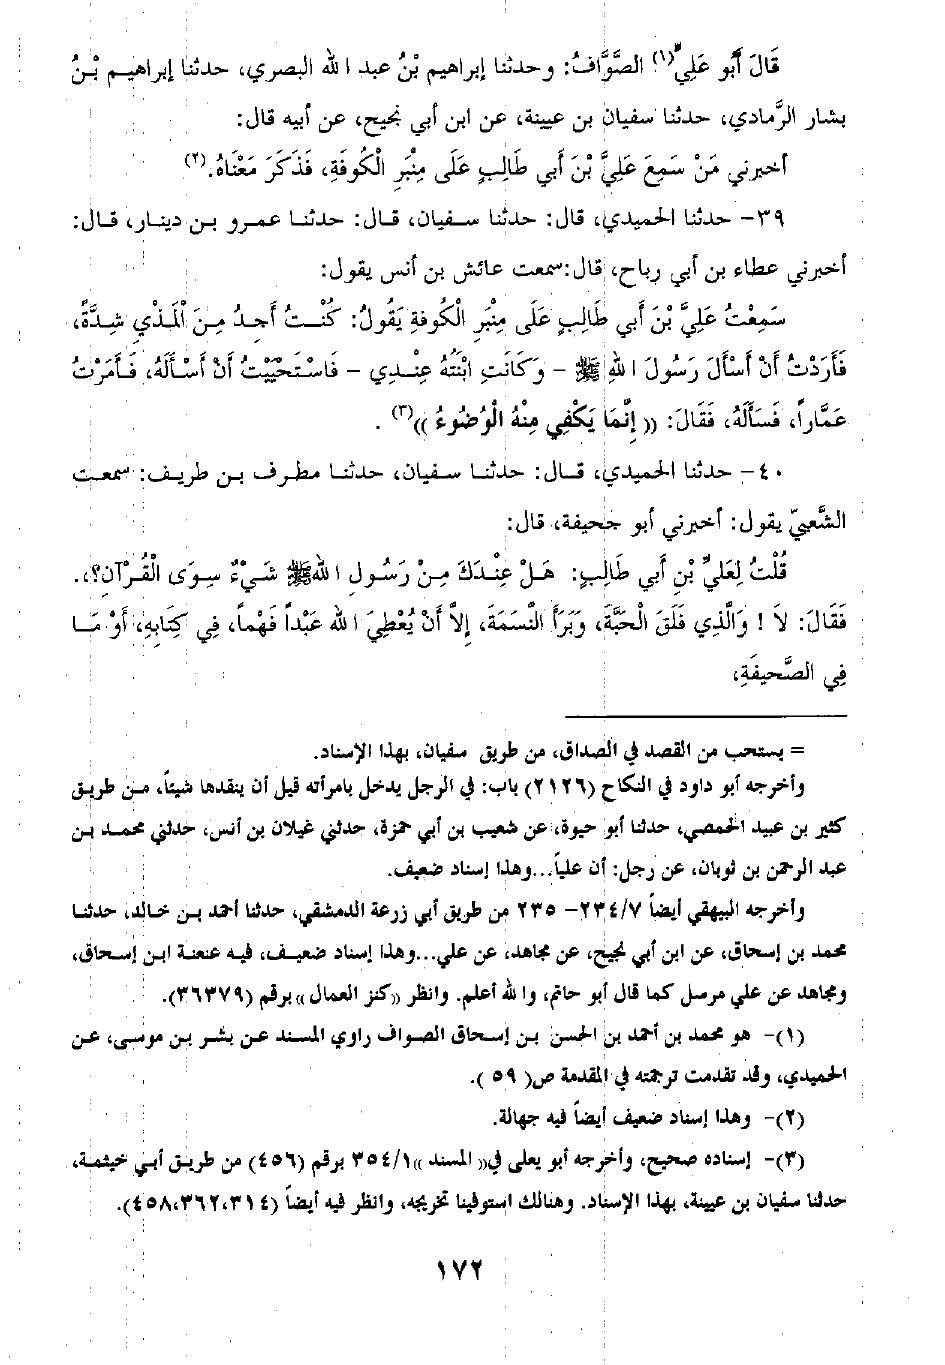 قَالَ أَبُو عَلِيٍّ(١) الصَّوَّافُ: وحدثنا إبراهيم بْنُ عبد الله البصري، حدثنا إبراهيم بْنُ
بشار الرَّمادي، حدثنا سفيان بن عيينة، عن ابن أبي نجيح، عن أبيه قال:
أخبرني مَنْ سَمِعَ عَلِيَّ بْنَ أَبِي طَالِبٍ عَلَى مِنْبَرِ الْكُوفَةِ، فَذَكَرَ مَعْنَاهُ.(٢)
٣٩- حدثنا الحميدي، قال: حدثنا سفيان، قال: حدثنا عمرو بن دينار، قال:
أخبرني عطاء بن أبي رباح، قال:سمعت عائش بن أنس يقول:
سَمِعْتُ عَلِيَّ بْنَ أَبِي طَالِبٍ عَلَى مِنْبَرِ الْكُوفةِ يَقُولُ: كُنْتُ أَجِدُ مِنَ الْمَذْيِ شِدَّةً،
فَأَرَدْتُ أَنْ أَسْأَلَ رَسُولَ اللهِ ﷺ – وَكَانَتِ ابْنَتُهُ عِنْدِي – فَاسْتَحْيَيْتُ أَنْ أَسْأَلَهُ، فَأَمَرْتُ
عَمَّاراً، فَسَأَلَهُ، فَقَالَ: (( إِنَّمَا يَكْفِي مِنْهُ الْوُضُوءُ ))(٣) .
٤٠- حدثنا الحميدي، قال: حدثنا سفيان، حدثنا مطرف بن طريف: سمعت
الشَّعبيّ يقول: أخبرني أبو جحيفة، قال:
قُلْتُ لِعَلِيِّ بْنِ أَبِي طَالِبٍ: هَلْ عِنْدَكَ مِنْ رَسُولِ اللهِﷺ شَيْءٌ سِوَى الْقُرْآنِ؟،.
فَقَالَ: لاَ ! وَالَّذِي فَلَقَ الْحَبَّةَ، وَبَرَأَ النَّسَمَةَ، إِلاَّ أَنْ يُعْطِيَ اللهُ عَبْداً فَهْماً، فِي كِتَابِهِ، أَوْ مَا
فِي الصَّحيفَةِ،
= يستحب من القصد في الصداق، من طريق سفيان، بهذا الإسناد.
وأخرجه أبو داود في النكاح (٢١٢٦) باب: في الرجل يدخل بامرأته قبل أن ينقدها شيئاً، من طريق
كثير بن عبيد الحمصي، حدثنا أبو حيوة، عن شعيب بن أبي حمزة، حدثني غيلان بن أنس، حدثني محمد بن
عبد الرحمن بن ثوبان، عن رجل: أن علياً...وهذا إسناد ضعيف.
وأخرجه البيهقي أيضاً ٢٣٤/٧- ٢٣٥ من طريق أبي زرعة الدمشقي، حدثنا أحمد بن خالد، حدثنا
محمد بن إسحاق، عن ابن أبي نجيح، عن مجاهد، عن علي...وهذا إسناد ضعيف، فيه عنعنة ابن إسحاق،
ومجاهد عن علي مرسل كما قال أبو حاتم، والله أعلم. وانظر ((كنز العمال)) برقم (٣٦٣٧٩).
(١)- هو محمد بن أحمد بن الحسن بن إسحاق الصواف راوي المسند عن بشر بن موسى، عن
الحميدي، وقد تقدمت ترجمته في المقدمة ص( ٥٩ ).
(٢)- وهذا إسناد ضعيف أيضاً فيه جهالة.
(٣)- إسناده صحيح، وأخرجه أبو يعلى في(( المسند ))٣٥٤/١ برقم (٤٥٦) من طريق أبي خيثمة،
حدثنا سفيان بن عيينة، بهذا الإسناد. وهنالك استوفينا تخريجه، وانظر فيه أيضاً (٣١٤،٣٦٢،٤٥٨).
١٧٢